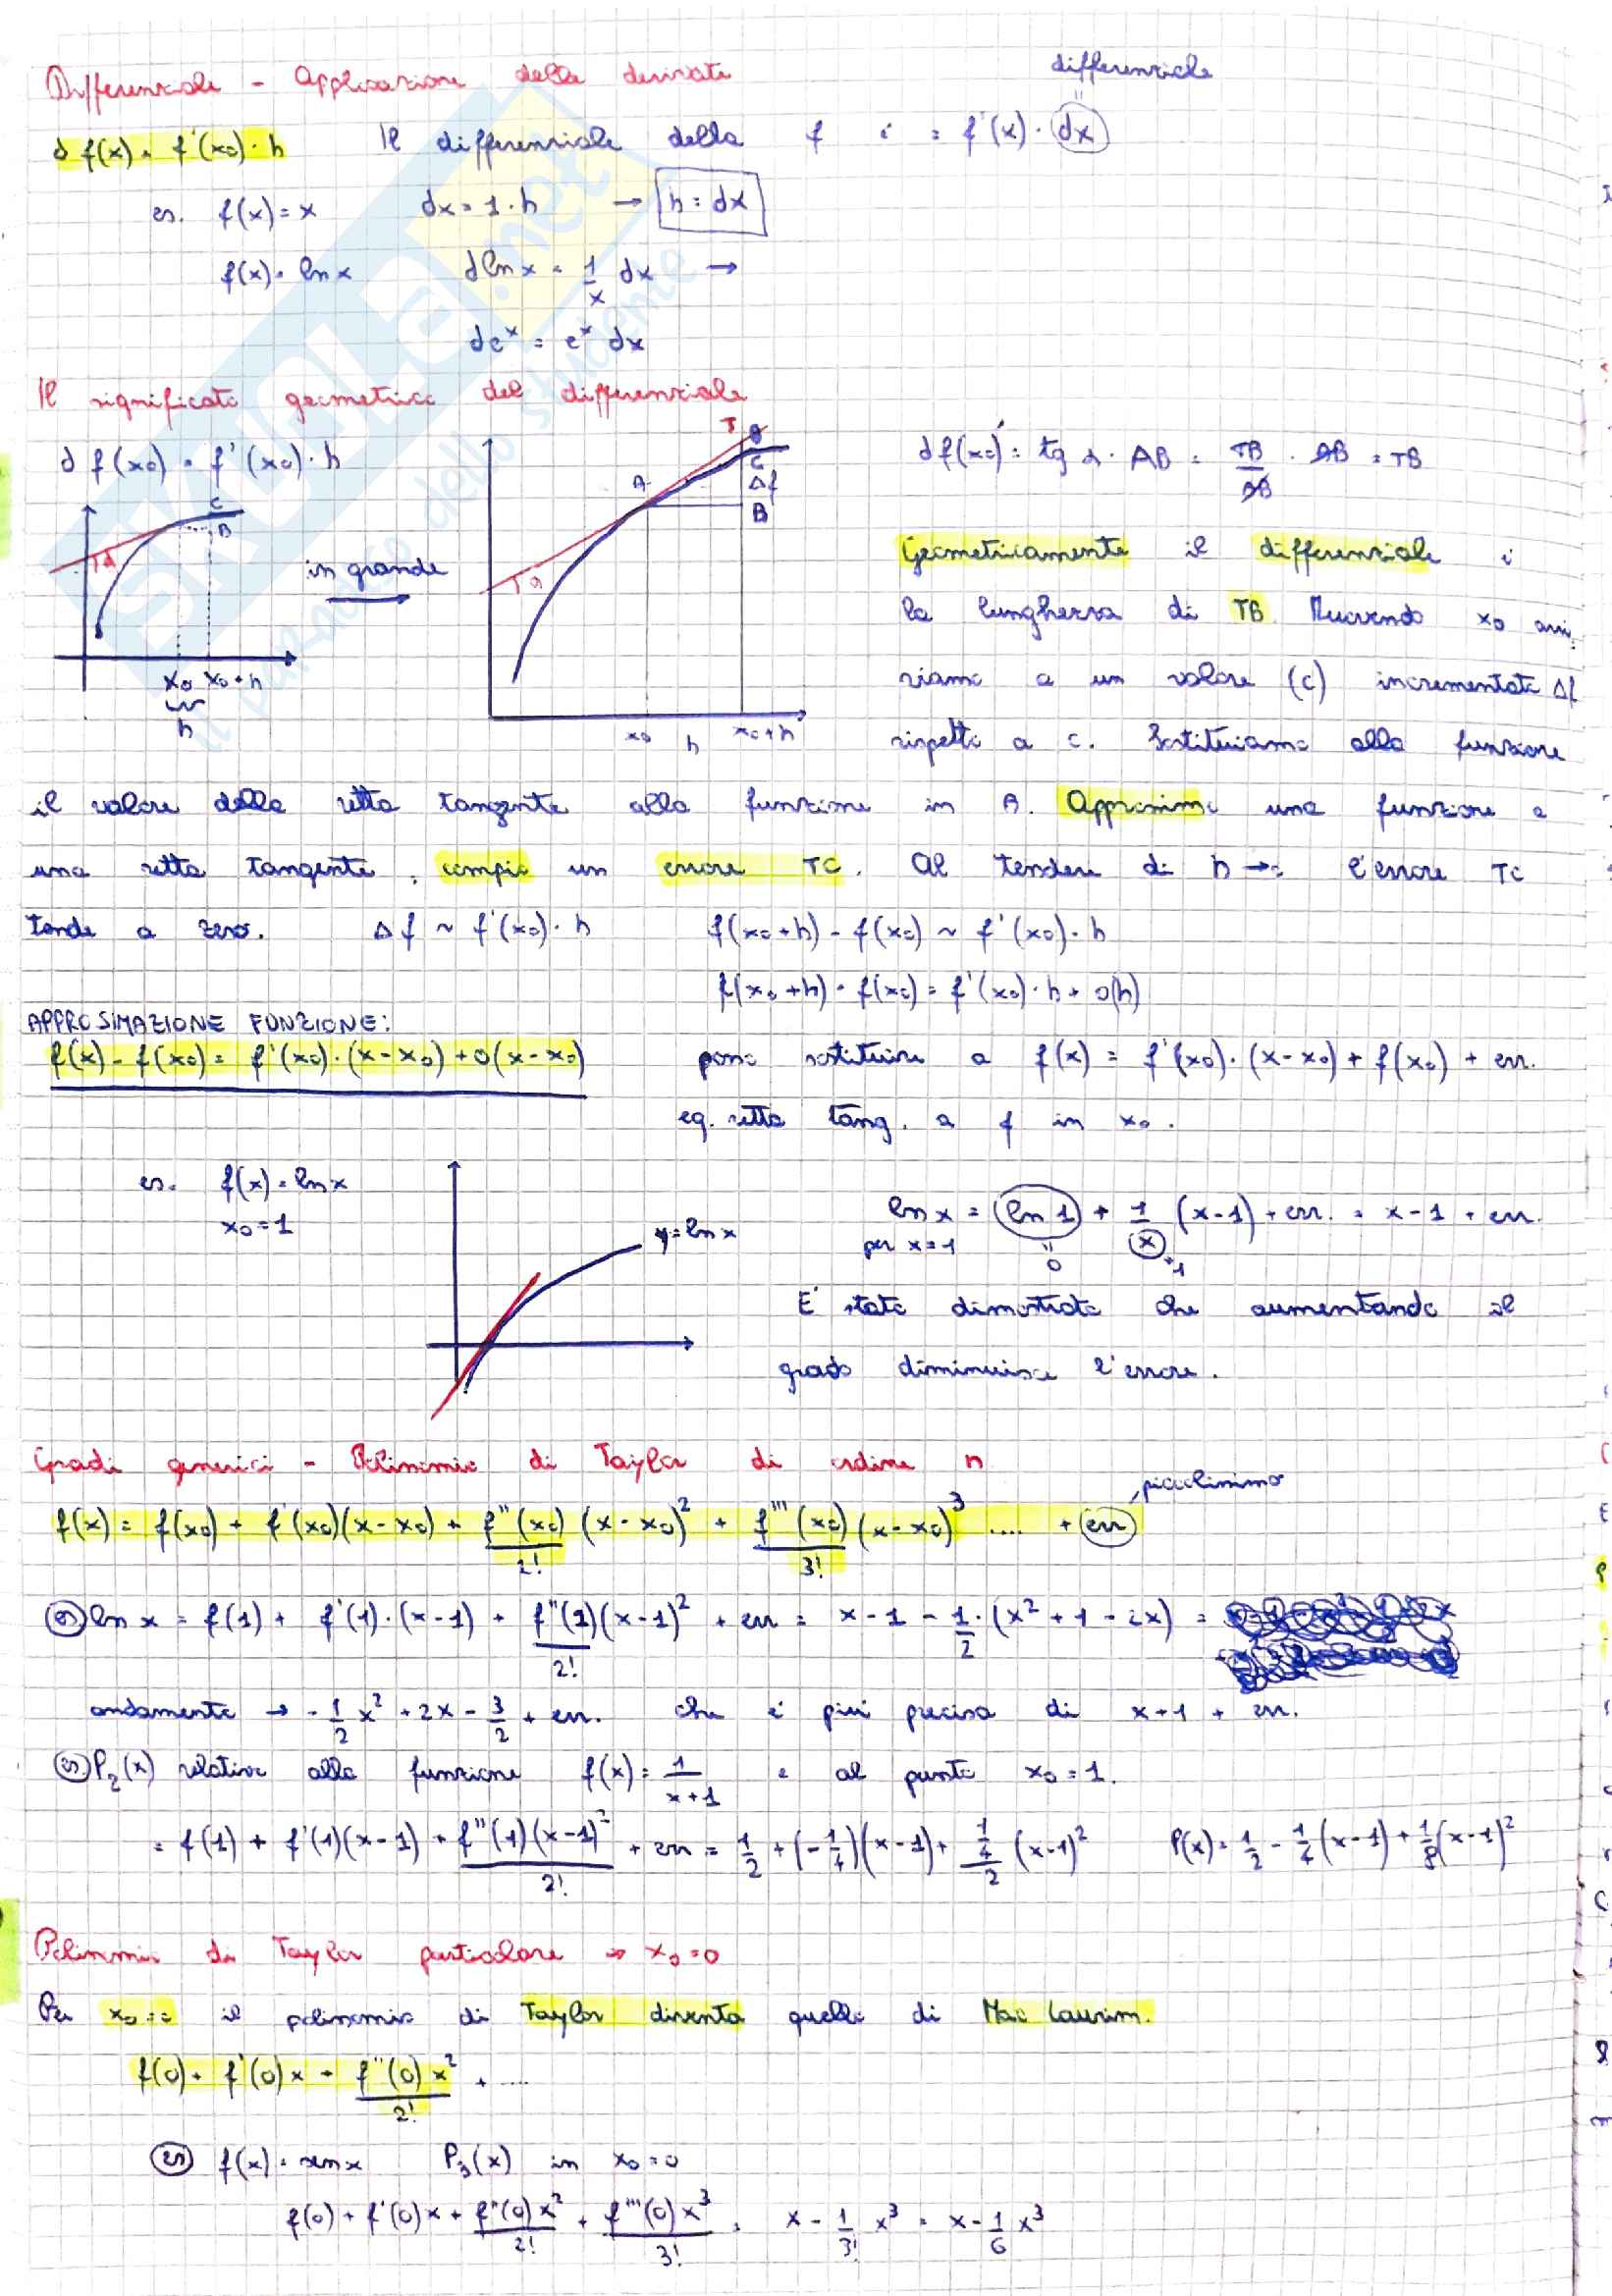 Differenziale - Applicazione della derivata
differenziale
d f(x) = f'(x0)·h Il differenziale della f è = f'(x)·dx
es. f(x) = x dx = 1·h → h = dx
f(x) = ln x d ln x = 1/x dx →
de^x = e^x dx
Il significato geometrico del differenziale
d f(x0) = f'(x0)·h
C
B
α
in grande
x0 x0+h
h
T
A
C
Δf
B
α
x0 h x0+h
df(x0) = tg α · AB = TB/AB · AB = TB
Geometricamente il differenziale è
la lunghezza di TB. Muovendo x0 arri
viamo a un valore (c) incrementato Δf
rispetto a c. Sostituiamo alla funzione
il valore della retta tangente alla funzione in A. Approssimo una funzione a
una retta tangente, compio un errore TC. Al tendere di h→0 l'errore TC
tende a zero. Δf ~ f'(x0)·h f(x0+h) - f(x0) ~ f'(x0)·h
f(x0+h) - f(x0) = f'(x0)·h + o(h)
APPROSSIMAZIONE FUNZIONE:
f(x) - f(x0) = f'(x0)·(x-x0) + o(x-x0) posso sostituire a f(x) = f'(x0)·(x-x0) + f(x0) + err.
eq. retta tang. a f in x0.
es. f(x) = ln x
x0 = 1
y = ln x
ln x = ln 1 + 1/x (x-1) + err. = x-1 + err.
per x=1 = 0 = 1
E' stato dimostrato che aumentando il
grado diminuisce l'errore.
Gradi generici - Polinomio di Taylor di ordine n
piccolissimo
f(x) = f(x0) + f'(x0)(x-x0) + f''(x0)/2! (x-x0)^2 + f'''(x0)/3! (x-x0)^3 .... + err
es ln x = f(1) + f'(1)·(x-1) + f''(1)/2! (x-1)^2 + err = x-1 - 1/2·(x^2+1-2x) =
andamento → -1/2 x^2 + 2x - 3/2 + err. che è più preciso di x+1 + err.
es P2(x) relativo alla funzione f(x) = 1/(x+1) e al punto x0 = 1.
= f(1) + f'(1)(x-1) + f''(1)(x-1)^2/2! + err = 1/2 + (-1/4)(x-1) + 1/4/2 (x-1)^2 P(x) = 1/2 - 1/4(x-1) + 1/8(x-1)^2
Polinomio di Taylor particolare → x0 = 0
Per x0 = 0 il polinomio di Taylor diventa quello di Mac Laurin.
f(0) + f'(0)x + f''(0)x^2/2! + ....
es f(x) = sen x P3(x) in x0 = 0
f(0) + f'(0)x + f''(0)x^2/2! + f'''(0)x^3/3! = x - 1/3! x^3 = x - 1/6 x^3